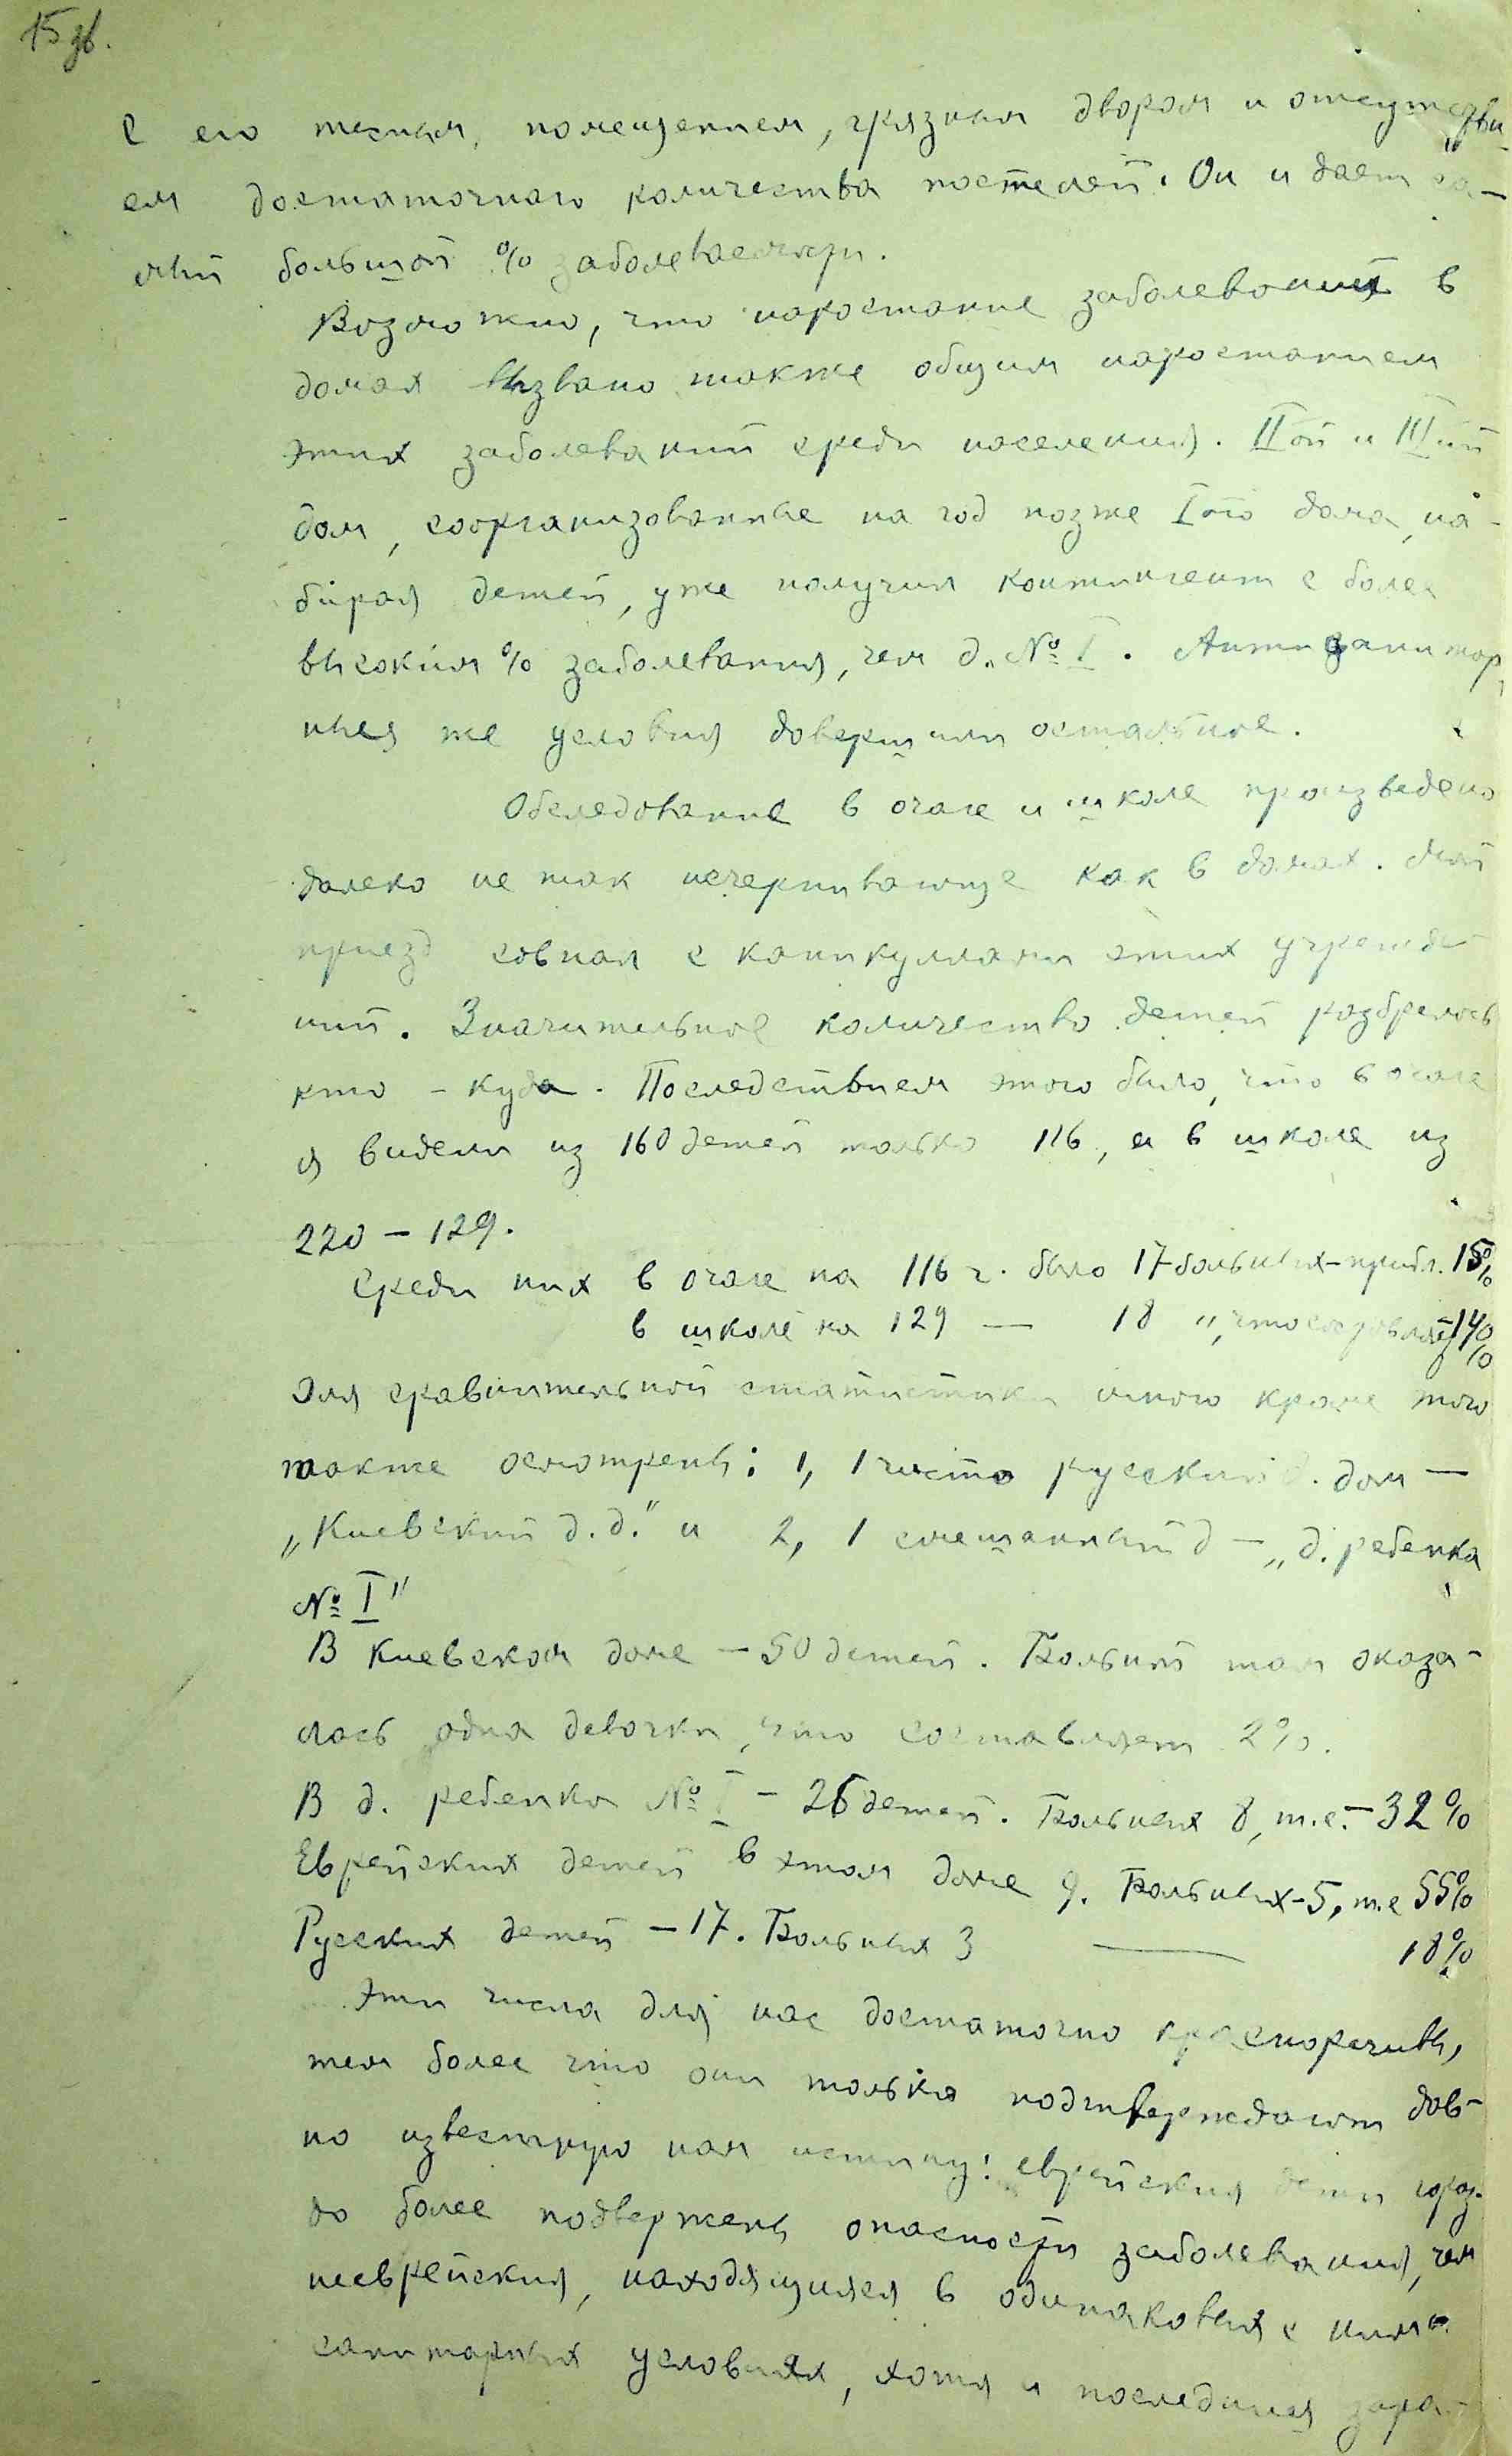 15 зв.
с его тесным, помещением, грязным двором и отсутстви-
ем достаточного количества постелей. Он и дает са-
мый большой % заболеваемости.
Возможно, что наростание заболеваний в
домах вызвано также общим наростанием
этих заболеваний среди населения. IIой и IIIий
дом, сорганизованные на год позже Iого дома, на-
бирая детей, уже получил контингент с более
высоким % заболевания, чем д. № I. Антисанитар-
ныя же условия довершили остальное.
Обследование в очаге и школе произведено
далеко не так исчерпывающе как в домах. Мой
приезд совпал с каникулами этих учрежде-
ний. Значительное количество детей разбрелось
кто - куда. Последствием этого было, что в очаге
я видели из 160 детей только 116, а в школе из
220 - 129.
Среди них в очаге на 116 ч. было 17 больных - прибл. 15%
в школе на 129 — 18 " , что составляет 14%
Для сравнительной статистики мною кроме того
также осмотрены: 1, 1 чисто русский д. дом —
„Киевский д.д." и 2, 1 смешанный д - „д. ребенка
№ I"
В Киевском доме - 50 детей. Больной там оказа-
лась одна девочка, что составляет 2%.
В д. ребенка № I - 26 детей. Больных 8, т.е. - 32%
Еврейских детей в этом доме 9. Больных - 5, т.е 55%
Русских детей - 17. Больных 3 — 18%
Эти числа для нас достаточно красноречивы,
тем более что они только подтверждают дав-
но известную нам истину: еврейския дети гораз-
до более подвержены опасности заболевания, чем
нееврейския, находящияся в одинаковых с ними
санитарных условиях, хотя и последния зара-